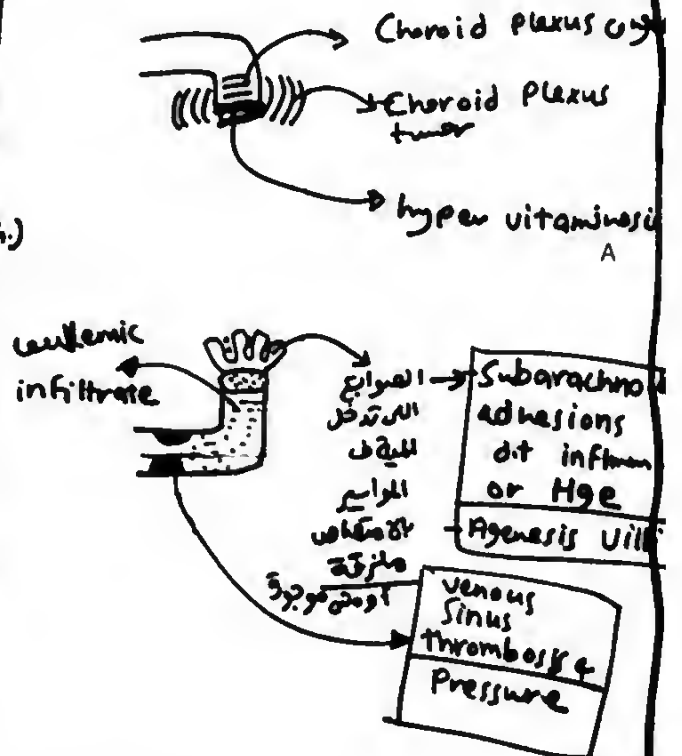 Choroid plexus cy
Choroid plexus
tumor
hyper vitaminosi
A
h.)
leukemic
infiltrate
الصوابع
اللى تدخل
المواسير
ملزقة
أو مش موجودة
Subarachno
adhesions
d.t inflamm
or Hge
Agenesis Villi
venous
Sinus
thrombosis &
Pressure